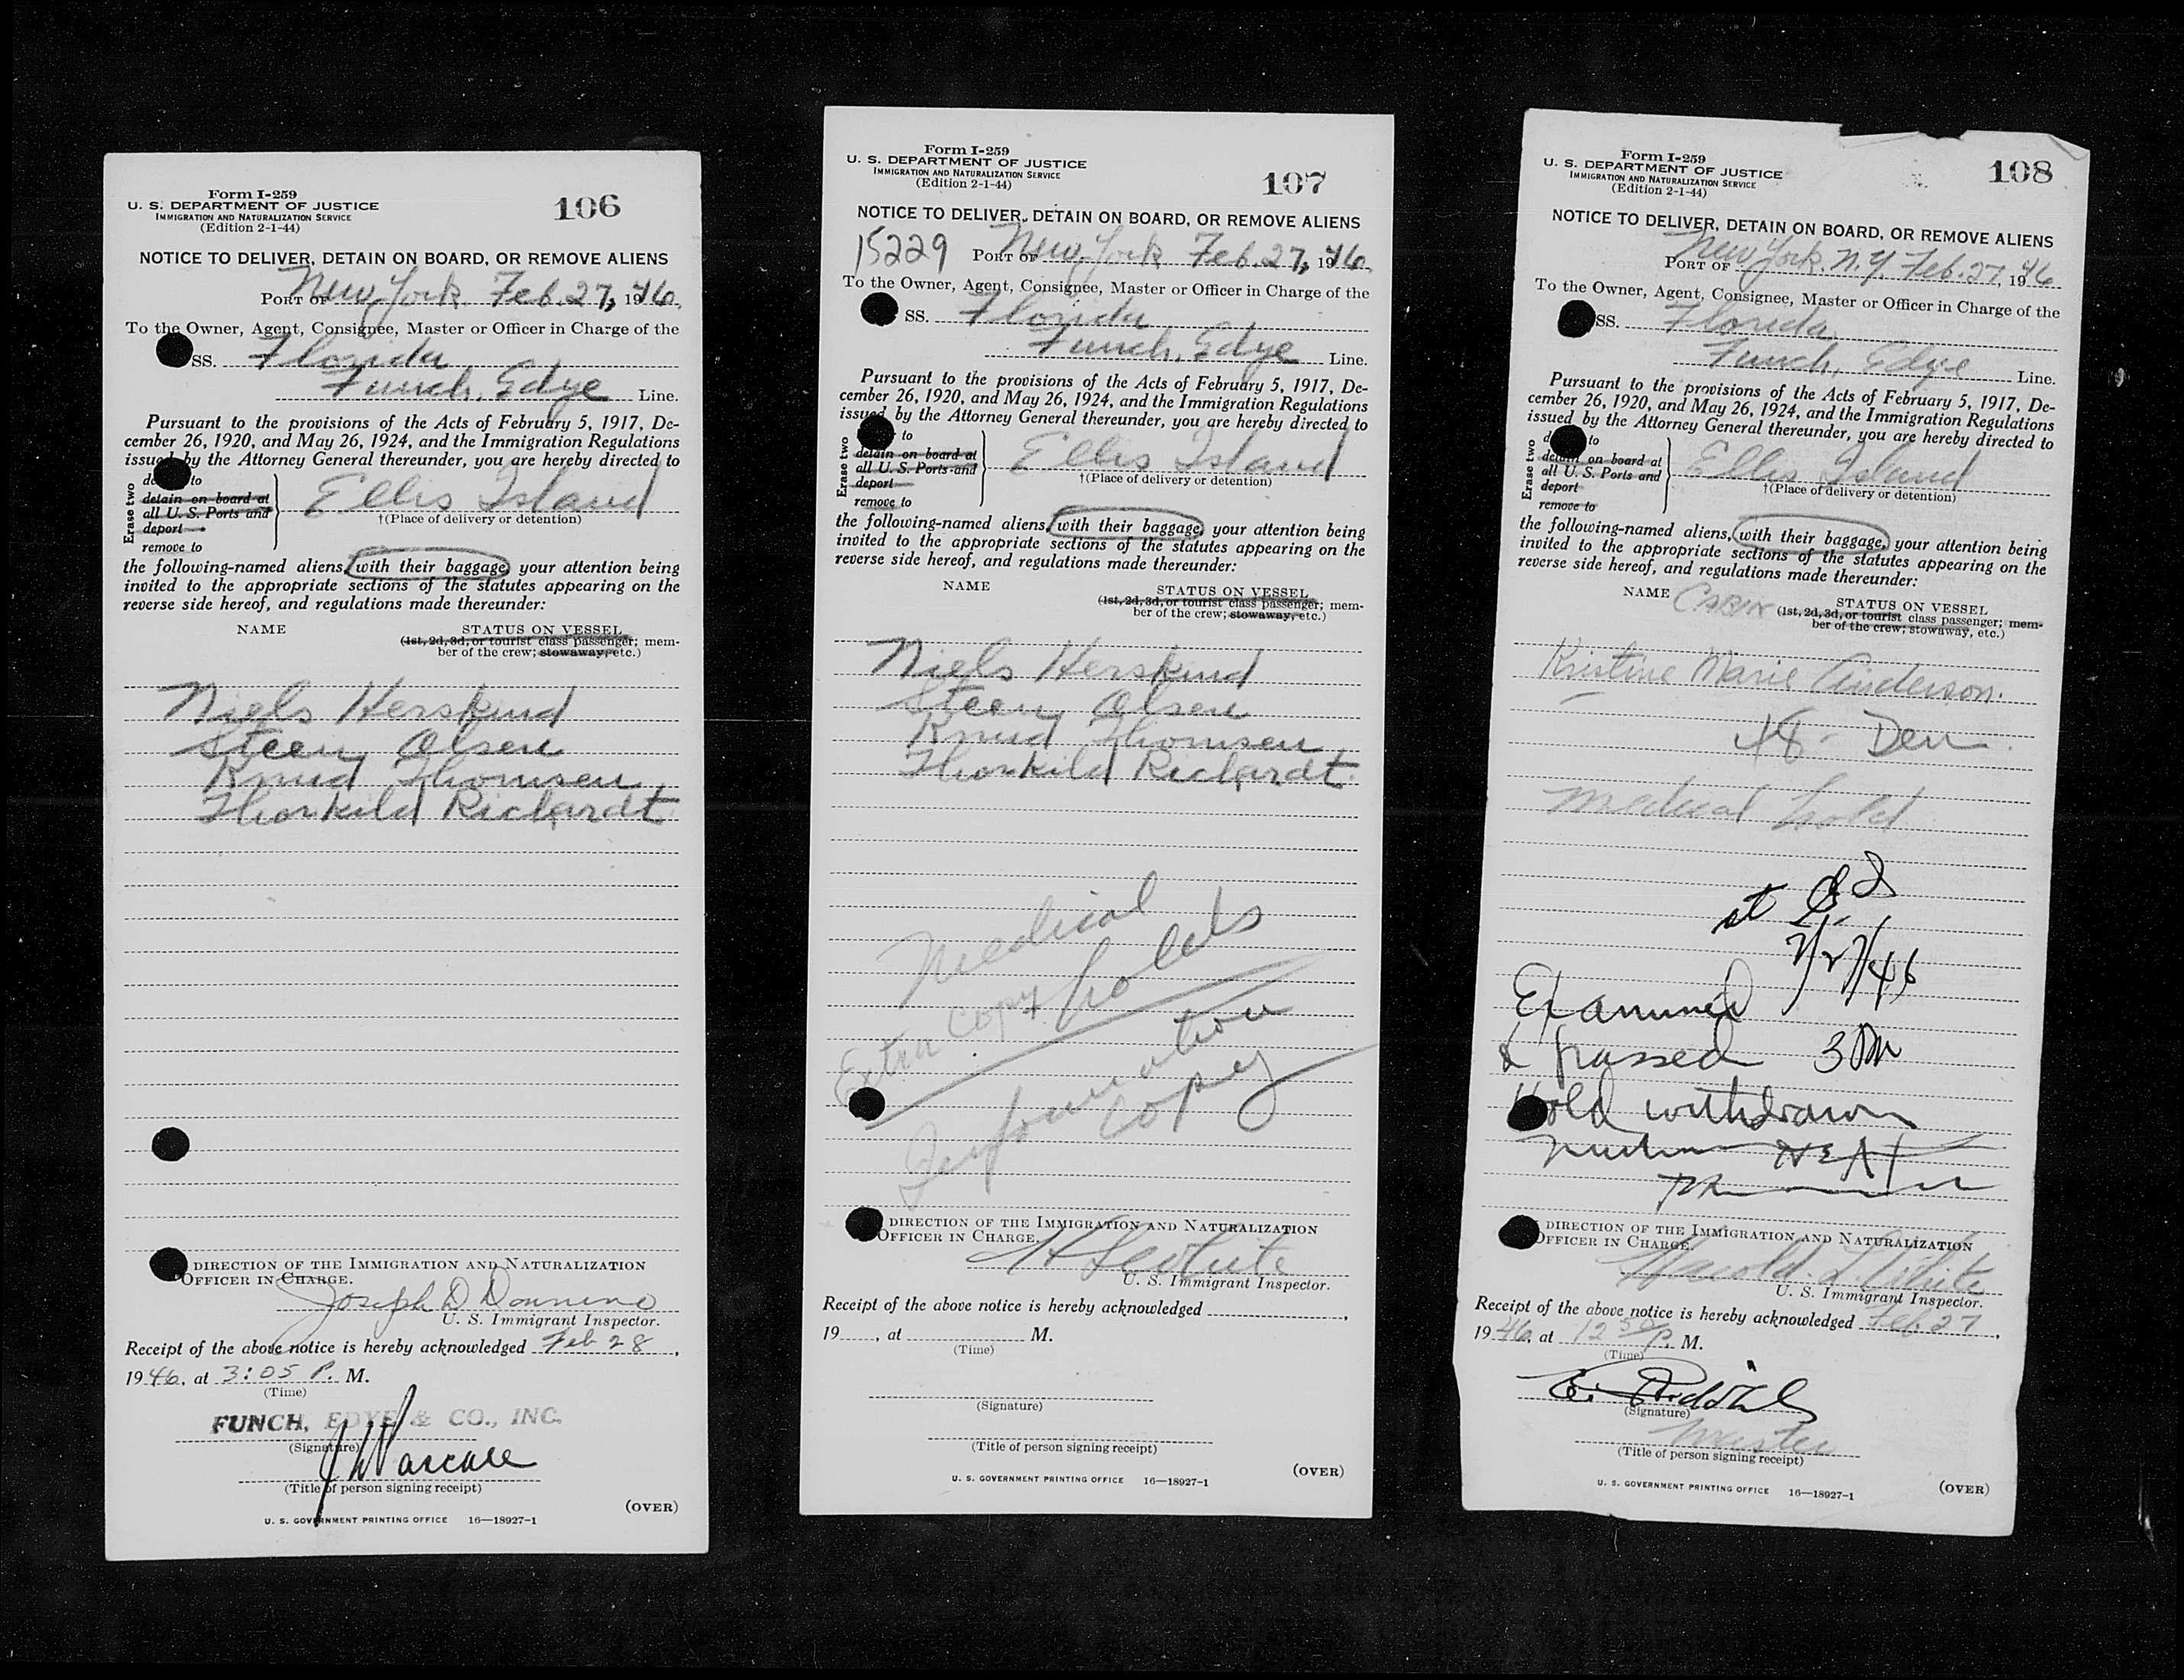 Form I-259
U. S. DEPARTMENT OF JUSTICE
IMMIGRATION AND NATURALIZATION SERVICE
(Edition 2-1-44)
106
NOTICE TO DELIVER, DETAIN ON BOARD, OR REMOVE ALIENS
PORT OF New York Feb. 27, 1946.
To the Owner, Agent, Consignee, Master or Officer in Charge of the
SS. Florida
Funch, Edye Line.
Pursuant to the provisions of the Acts of February 5, 1917, De-
cember 26, 1920, and May 26, 1924, and the Immigration Regulations
issued by the Attorney General thereunder, you are hereby directed to
Erase two
to
detain on board at
all U. S. Ports and
deport
remove to
Ellis Island
†(Place of delivery or detention)
the following-named aliens, with their baggage, your attention being
invited to the appropriate sections of the statutes appearing on the
reverse side hereof, and regulations made thereunder:
NAME
STATUS ON VESSEL
(1st, 2d, 3d, or tourist class passenger; mem-
ber of the crew; stowaway, etc.)
Niels Herskind
Steen Olsen
Knud Thomsen
Thorkild Richardt
DIRECTION OF THE IMMIGRATION AND NATURALIZATION
OFFICER IN CHARGE.
Joseph D
U. S. Immigrant Inspector.
Receipt of the above notice is hereby acknowledged Feb 28,
1946, at 3:05 P. M.
(Time)
FUNCH, EDYE & CO., INC.
(Signature)
(Title of person signing receipt)
(OVER)
U. S. GOVERNMENT PRINTING OFFICE 16—18927-1
Form I-259
U. S. DEPARTMENT OF JUSTICE
IMMIGRATION AND NATURALIZATION SERVICE
(Edition 2-1-44)
107
NOTICE TO DELIVER, DETAIN ON BOARD, OR REMOVE ALIENS
15229 PORT OF New York Feb. 27, 1946.
To the Owner, Agent, Consignee, Master or Officer in Charge of the
SS. Florida
Funch, Edye Line.
Pursuant to the provisions of the Acts of February 5, 1917, De-
cember 26, 1920, and May 26, 1924, and the Immigration Regulations
issued by the Attorney General thereunder, you are hereby directed to
Erase two
to
detain on board at
all U. S. Ports and
deport
remove to
Ellis Island
†(Place of delivery or detention)
the following-named aliens, with their baggage, your attention being
invited to the appropriate sections of the statutes appearing on the
reverse side hereof, and regulations made thereunder:
NAME
STATUS ON VESSEL
(1st, 2d, 3d, or tourist class passenger; mem-
ber of the crew; stowaway, etc.)
Niels Herskind
Steen Olsen
Knud Thomsen
Thorkild Richardt
Medical
holds
Extra copy
Information
copy
DIRECTION OF THE IMMIGRATION AND NATURALIZATION
OFFICER IN CHARGE.
H L White
U. S. Immigrant Inspector.
Receipt of the above notice is hereby acknowledged
19, at M.
(Time)
(Signature)
(Title of person signing receipt)
(OVER)
U. S. GOVERNMENT PRINTING OFFICE 16—18927-1
Form I-259
U. S. DEPARTMENT OF JUSTICE
IMMIGRATION AND NATURALIZATION SERVICE
(Edition 2-1-44)
108
NOTICE TO DELIVER, DETAIN ON BOARD, OR REMOVE ALIENS
PORT OF New York, N.Y. Feb. 27, 1946
To the Owner, Agent, Consignee, Master or Officer in Charge of the
SS. Florida
Funch, Edye Line.
Pursuant to the provisions of the Acts of February 5, 1917, De-
cember 26, 1920, and May 26, 1924, and the Immigration Regulations
issued by the Attorney General thereunder, you are hereby directed to
Erase two
to
detain on board at
all U. S. Ports and
deport
remove to
Ellis Island
†(Place of delivery or detention)
the following-named aliens, with their baggage, your attention being
invited to the appropriate sections of the statutes appearing on the
reverse side hereof, and regulations made thereunder:
NAME
CABIN
STATUS ON VESSEL
(1st, 2d, 3d, or tourist class passenger; mem-
ber of the crew; stowaway, etc.)
Kristine Marie Anderson.
48 - Den.
Medical hold
at
2/27/46
Examined
& passed 3 PM
Hold withdrawn
DIRECTION OF THE IMMIGRATION AND NATURALIZATION
OFFICER IN CHARGE.
Harold L. White
U. S. Immigrant Inspector.
Receipt of the above notice is hereby acknowledged Feb. 27,
1946, at 12 50 P. M.
(Time)
(Signature)
Master
(Title of person signing receipt)
(OVER)
U. S. GOVERNMENT PRINTING OFFICE 16—18927-1